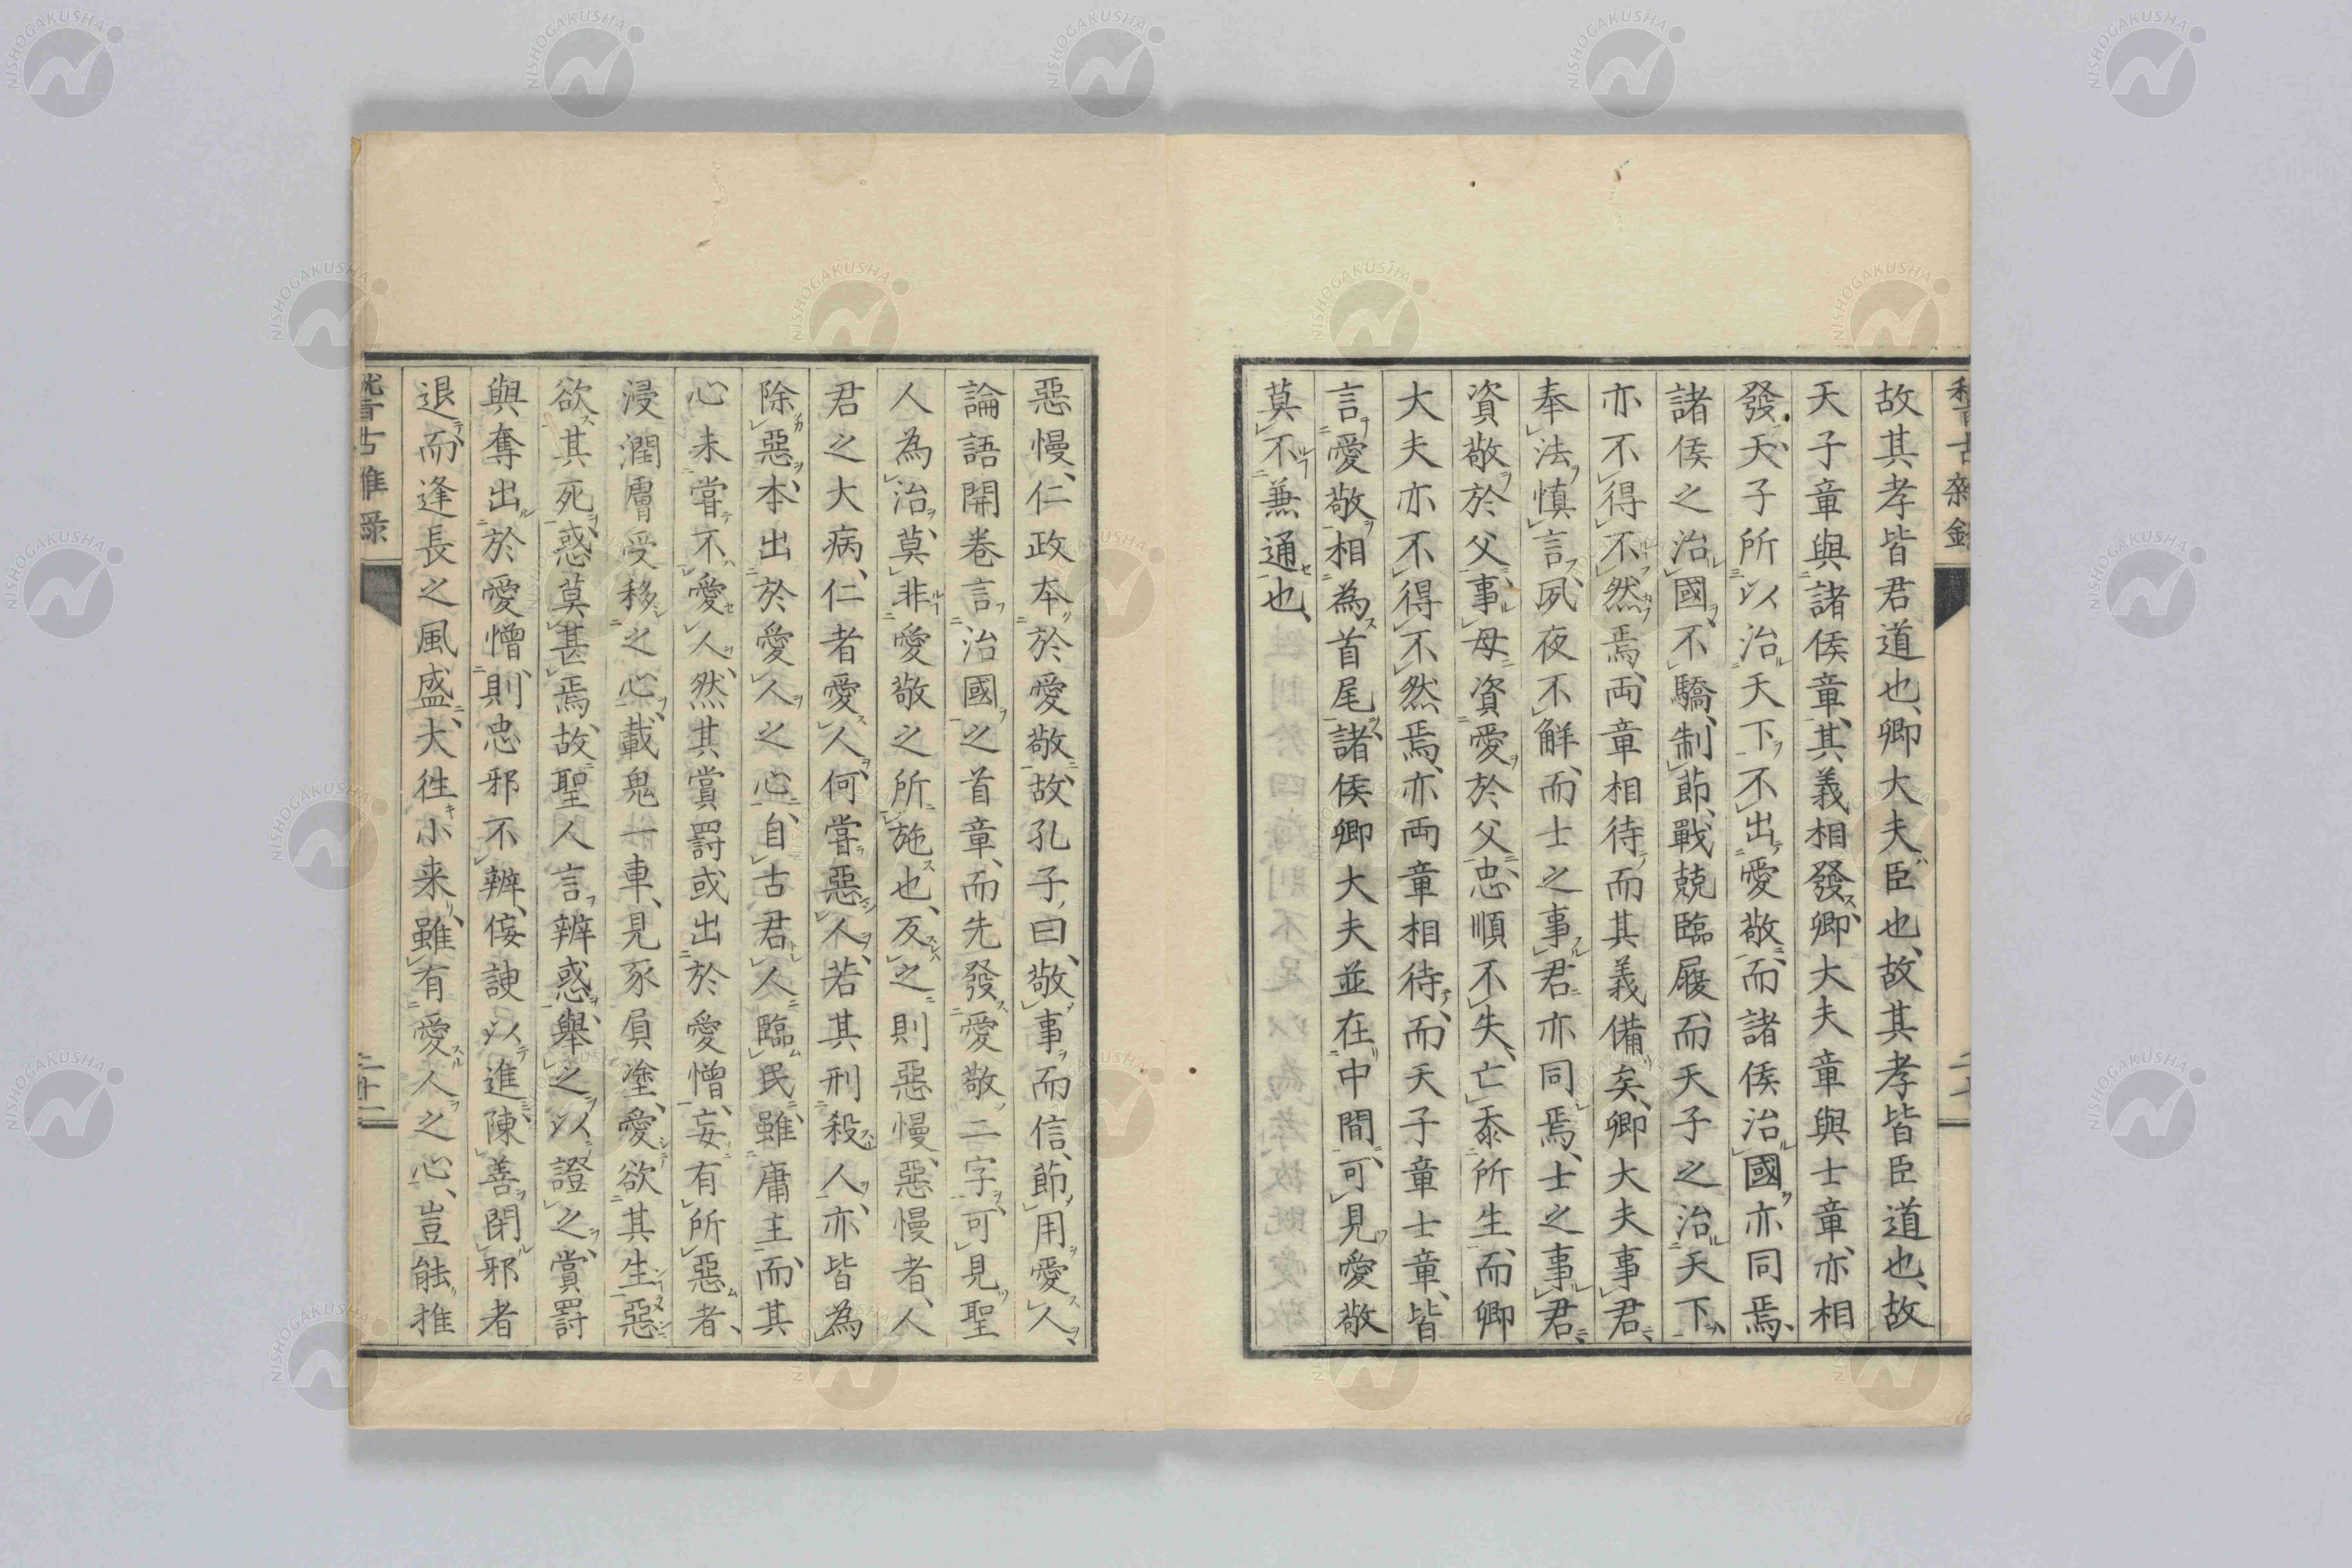 故其孝皆君道也、卿大夫臣也、故其孝皆臣道也、故
天子章與諸侯章、其義相發、卿大夫章與士章、亦相
發、天子所以治天下、不出愛敬、而諸侯治國亦同焉、
諸侯之治國、不驕、制節、戰兢臨履、而天子之治天下、
亦不得不然焉、両章相待而其義備矣、卿大夫事君、
奉法慎言、夙夜不解、而士之事君亦同焉、士之事君、
資敬於父、事母資愛於父、忠順不失、亡忝所生、而卿
大夫亦不得不然焉、亦両章相待、而天子章士章、皆
言愛敬相為首尾、諸侯卿大夫並在中間、可見愛敬
莫不兼通也、
惡慢、仁政本於愛敬、故孔子曰、敬事而信、節用愛人、
論語開卷言治國之首章、而先發愛敬二字、可見聖
人為治、莫非愛敬之所施也、反之則惡慢、惡慢者、人
君之大病、仁者愛人、何嘗惡人、若其刑殺人、亦皆為
除惡、本出於愛人之心、自古君人臨民、雖庸主、而其
心未嘗不愛人、然其賞罰或出於愛憎、妄有所惡者、
浸潤膚受移之心、載鬼一車、見豕負塗、愛欲其生、惡
欲其死、惑莫甚焉、故聖人言辨惑、舉之以證之、賞罰
與奪出於愛憎、則忠邪不辨、佞諛以進、陳善閉邪者
退、而逢長之風盛、大徃小来、雖有愛人之心、豈能推
稽古雜錄
二十二
NISHOGAKUSHA